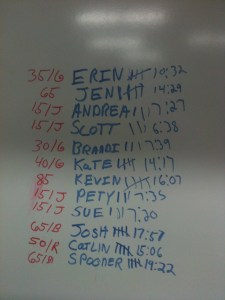 35/G ERIN 10:32
65 JEN 14:29
15/J ANDREA 7:27
15/J SCOTT 6:38
30/G BRANDI 7:39
40/G KATE 14:17
85 KEVIN 16:07
15/J PETY 7:35
15/J SUE 7:20
65/B JOSH 17:57
50/R CATLIN 15:06
65/B SPOONER 19:22